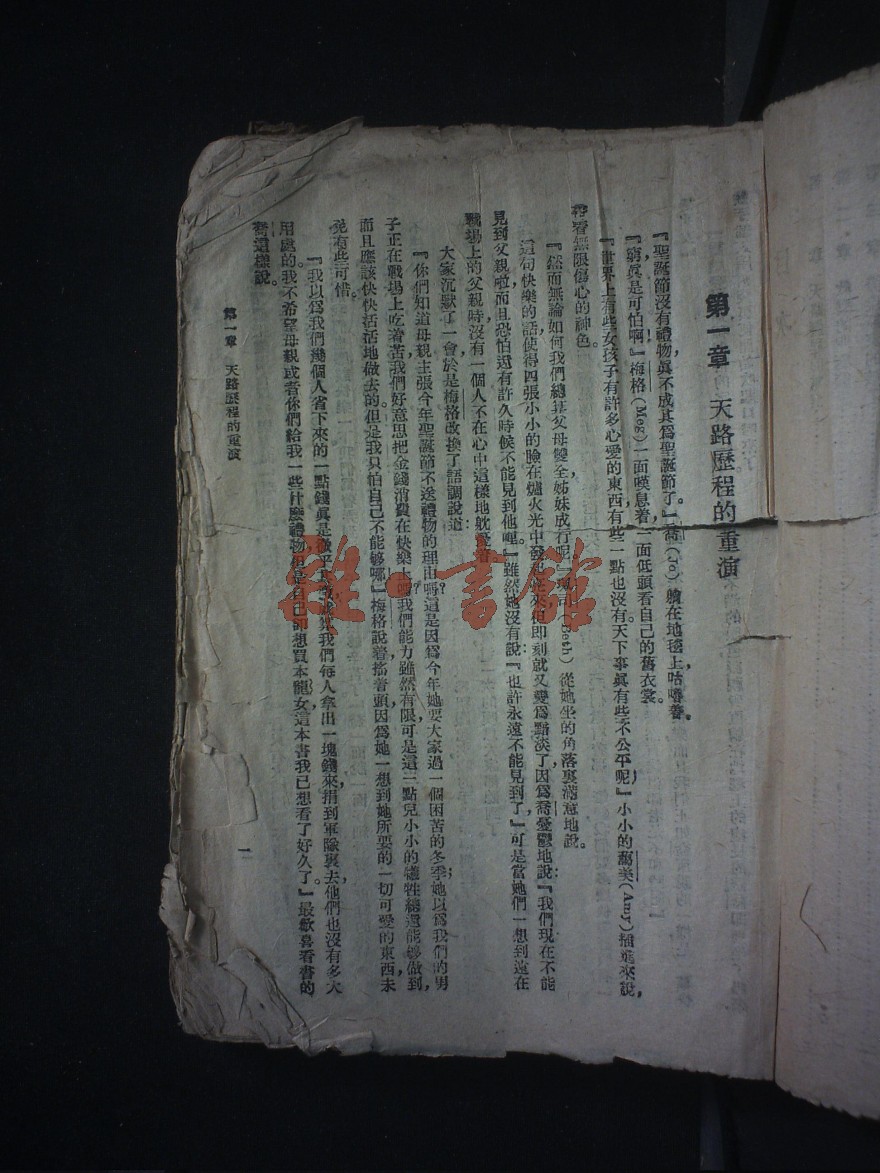 第一章　天路歷程的重演
『聖誕節沒有禮物，眞不成其爲聖誕節了。』喬（Jo）躺在地毯上咕嚕着。
『窮眞是可怕啊！』梅格（Meg）一面嘆息着，一面低頭看自己的舊衣裳。
『世界上有些女孩子有許多心愛的東西，有些一點也沒有。天下事眞有些不公平呢，』小小的（Amy）插進來說，
帶着無限傷心的神色。
『然而無論如何，我們總算父母雙全，姊妹成行呢，』（Beth）從她坐的角落裏滿意地說。
這句快樂的話使得四張小小的臉在爐火光中發起亮來，但即刻就又變爲黯淡了，因爲喬憂鬱地說：『我們現在不能
見到父親啦，而且恐怕還有許久時候不能見到他哩。』雖然她沒有說：『也許永遠不能見到了，』可是當她們一想到遠在
戰場上的父親時，沒有一個人不在心中這樣地躭憂着。
大家沉默了一會，於是梅格改換了語調說道：
『你們知道母親主張今年聖誕節不送禮物的理由嗎？這是因爲今年她要大家過一個困苦的冬季；她以爲我們的男
子正在戰場上吃着苦，我們好意思把金錢消費在快樂上嗎？我們能力雖然有限，可是這三點兒小小的犧牲總還能够做到，
而且應該快快活活地做去的。但是我只怕自己不能够哪。』梅格說着搖着頭，因爲她一想到她所要的一切可愛的東西，未
免有些可惜。
『我以爲我們幾個人省下來的一點錢眞是微乎其微，就算我們每人拿出一塊錢來捐到軍隊裏去，他們也沒有多大
用處的。我不希望母親或者你們給我一些什麽禮物，但是自己卻想買本龍女，這本書我已想看了好久了。』最歡喜看書的
喬這樣說。
第一章　天路歷程的重演
一
雜·書館